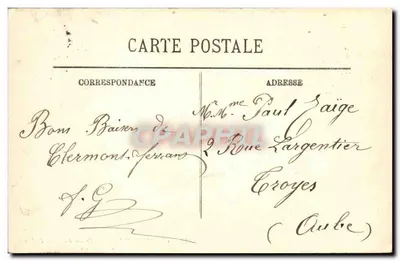 CARTE POSTALE
CORRESPONDANCE
Bons Baisers de
Clermont-Ferrand
f. G
ADRESSE
Mr Mme Paul Zaïge
2 Rue Largentier
Troyes
(Aube)
CPAPHIL